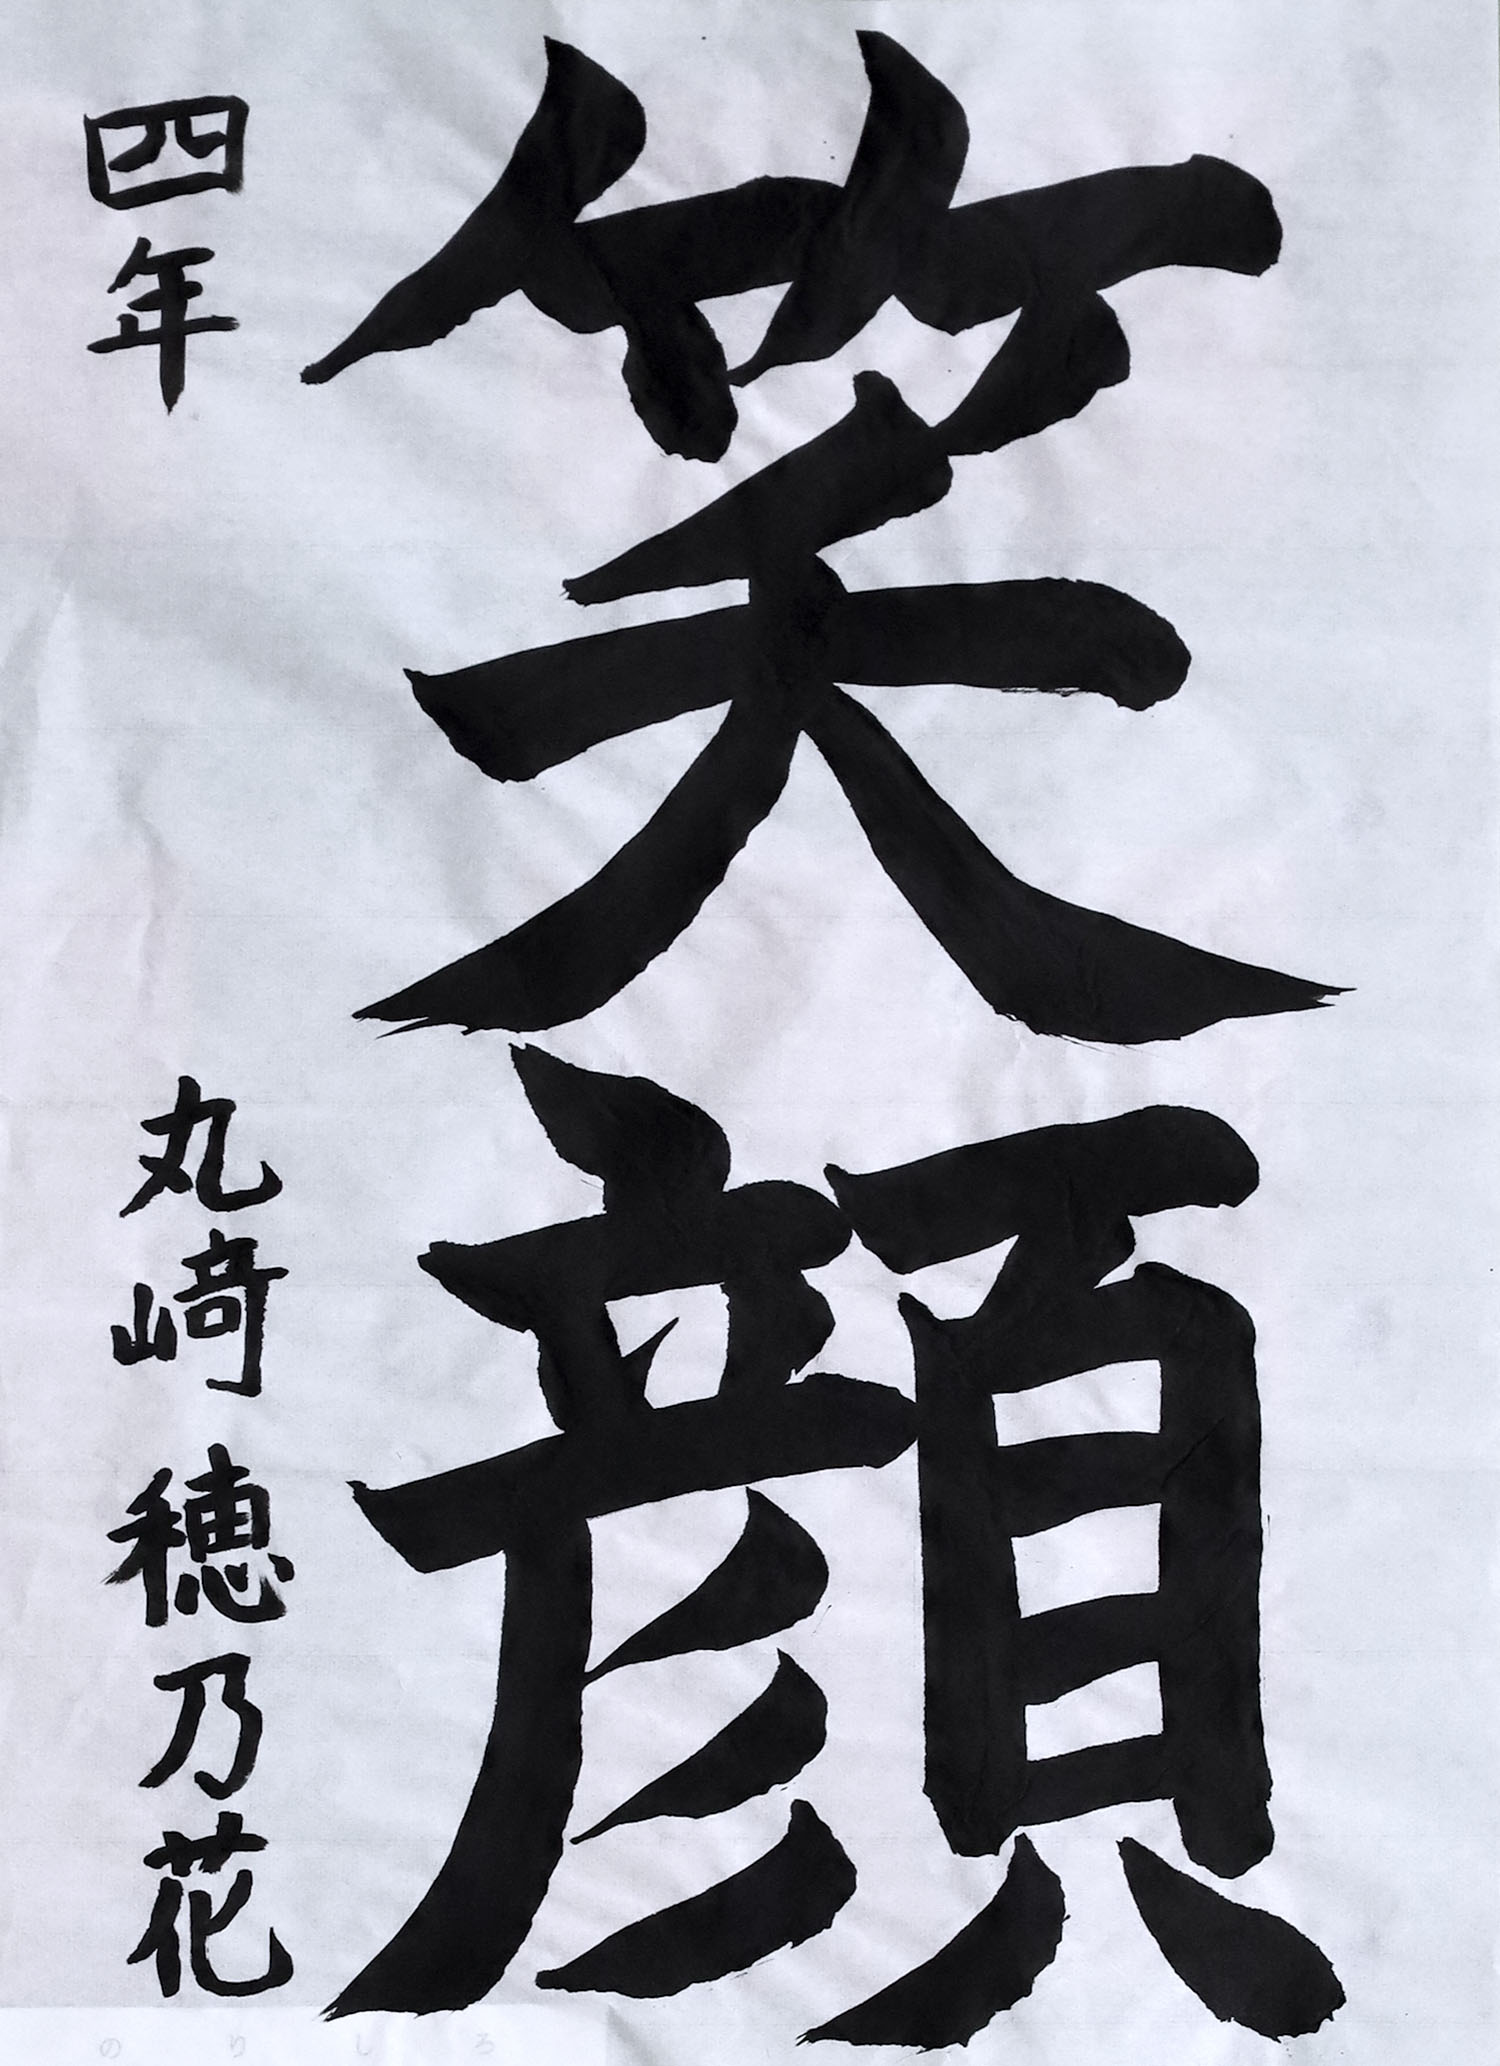 笑顔
四年 丸﨑 穂乃花
のりしろ